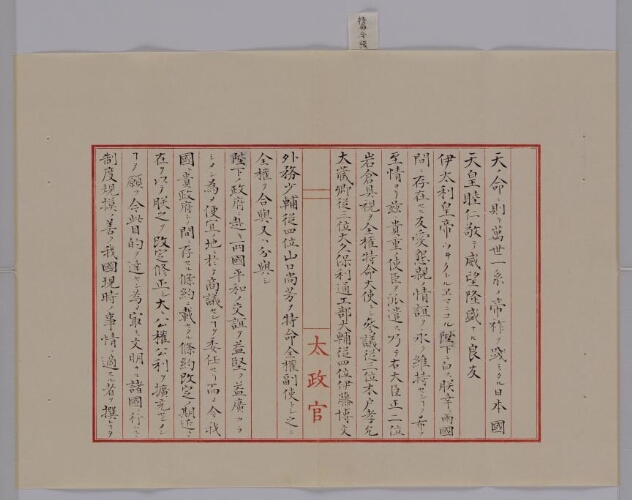 天ノ命ニ則リ萬世一系ノ帝祚ヲ踐ミタル日本國
天皇睦仁敬テ威望隆盛ナル良友
伊太利皇帝ウヰクトル
陛下ニ白ス朕幸ニ兩國
間ニ存在セル友愛懇親ノ情誼ヲ永ク維持センヿヲ希フ
至情ヨリ茲ニ貴重ノ使臣ヲ派遣ス乃チ右大臣正二位
岩倉具視ヲ全權特命大使トシ參議從三位木戸孝允
大藏卿從三位大久保利通工部大輔從四位伊藤博文
太政官
外務少輔從四位山口尚芳ヲ特命全權副使トシ之ニ
全權ヲ合與又ハ分與シ
陛下ノ政府ニ赴キ兩國平和ノ交誼ヲ益堅フシ益廣カラ
シメン為メ便宜ノ地ニ於テ商議センヿヲ委任セリ而メ今我
國ト貴政府トノ間ニ存セル條約ニ載タル條約改定ノ期近キニ
在ルヲ以テ朕之ヲ改定修正シ大ニ公權公利ヲ擴充セン
ヿヲ願フ今此目的ヲ達セン為メ最文明ナル諸國ニ行ハル
制度規模ノ善ク我國現時ノ事情ニ適スル者ヲ撰ヒ